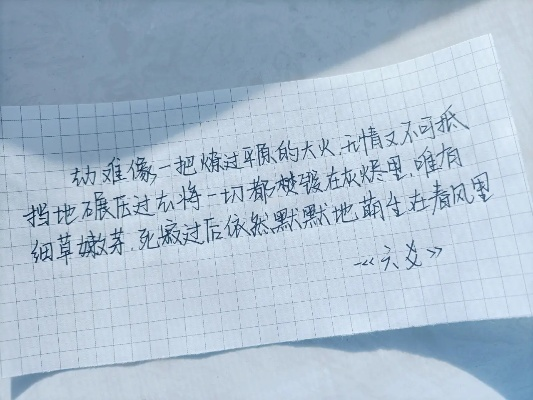 劫难像一把燎过平原的大火,无情又不可抵
挡地碾压过去将一切都焚毁在灰烬里,唯有
细草嫩芽,死寂过后依然默默地萌生在春风里
—《六爻》